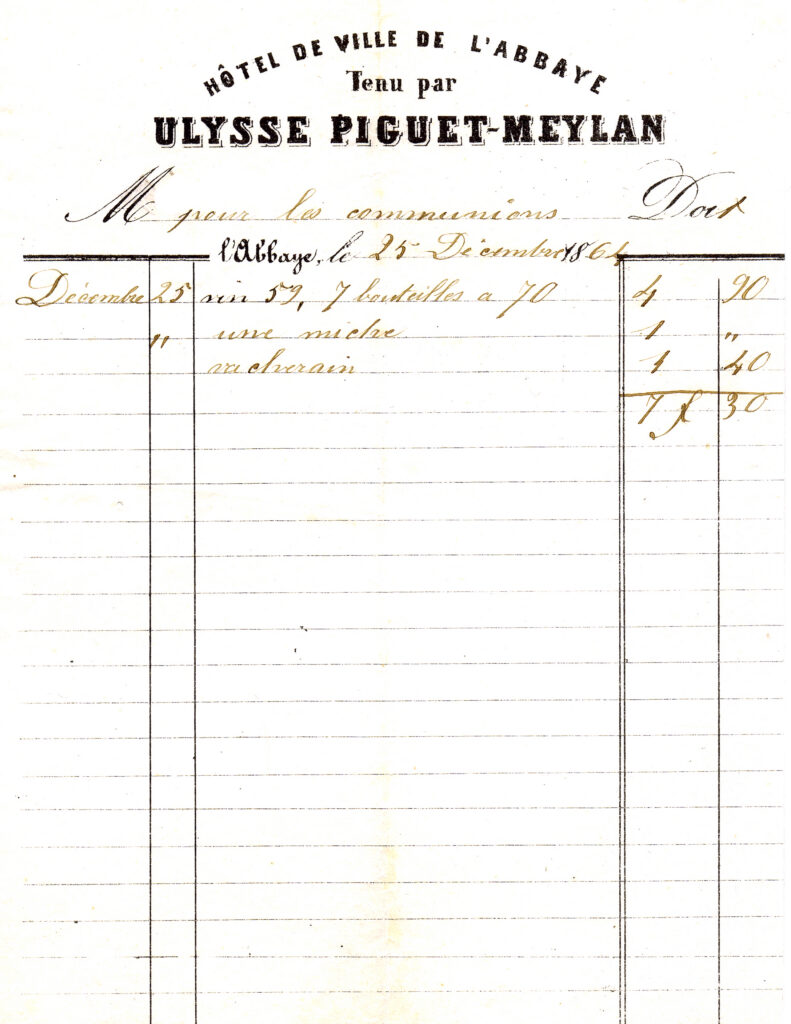 HÔTEL DE VILLE DE L'ABBAYE
Tenu par
ULYSSE PIGUET-MEYLAN
M pour les communions Doit
l'Abbaye, le 25 Décembre 1864
Décembre 25 vin 59, 7 bouteilles a 70 4 90
" une miche 1 "
vacherain 1 40
7 f 30